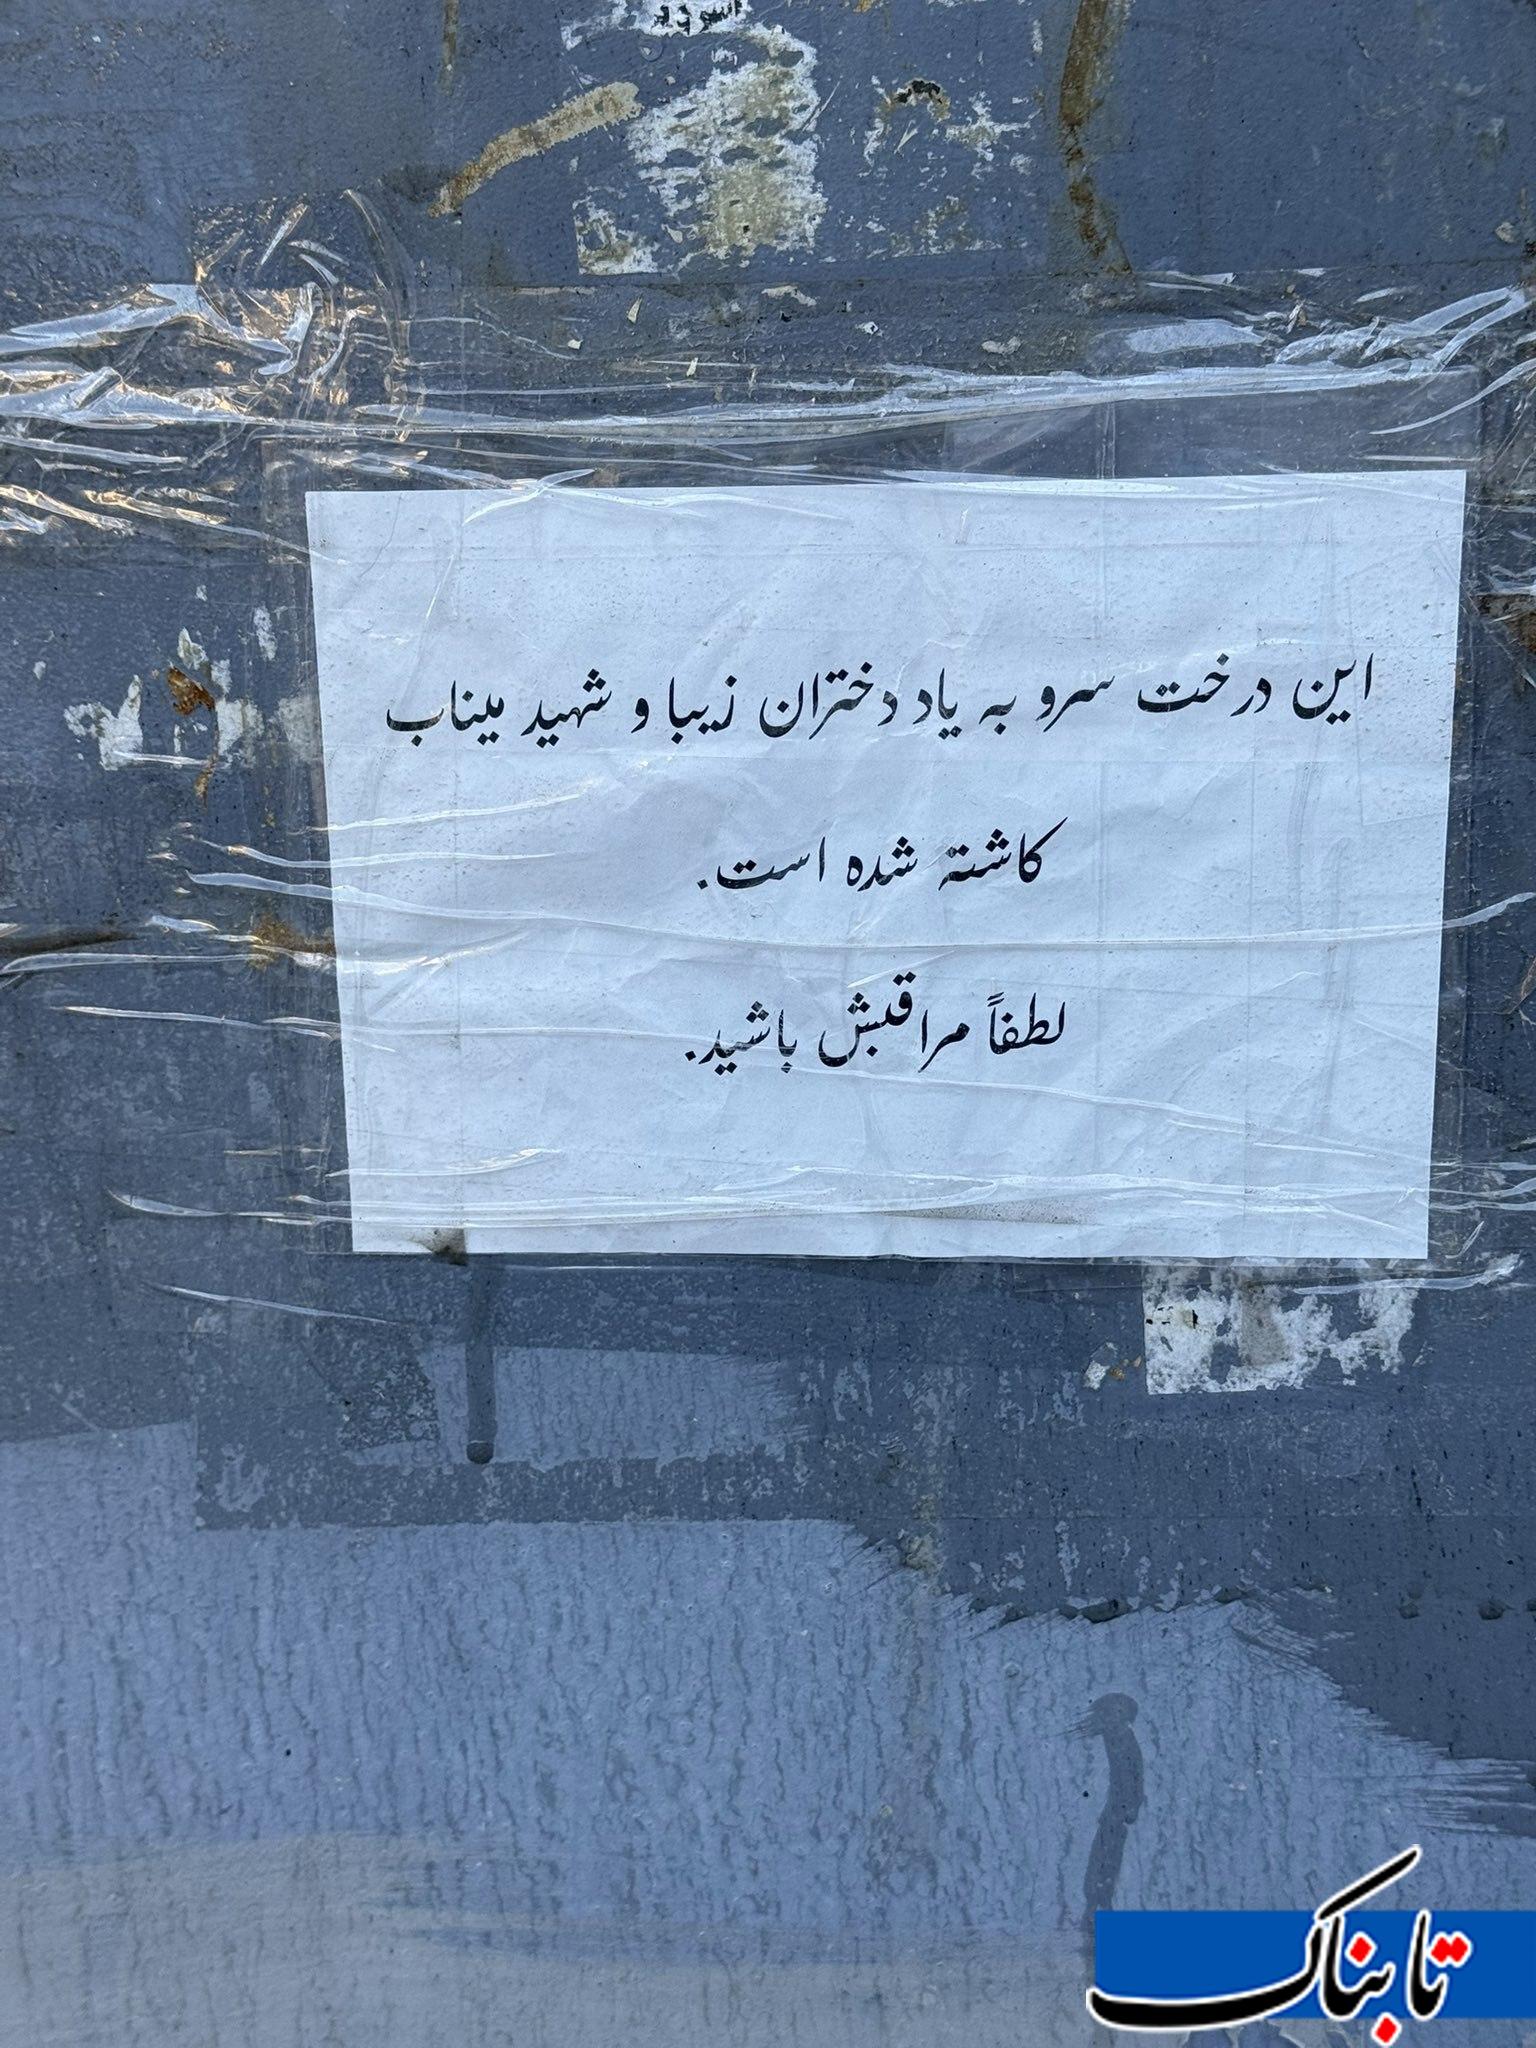 این درخت سرو به یاد دختران زیبا و شهید میناب
کاشته شده است.
لطفاً مراقبش باشید.
تابناک